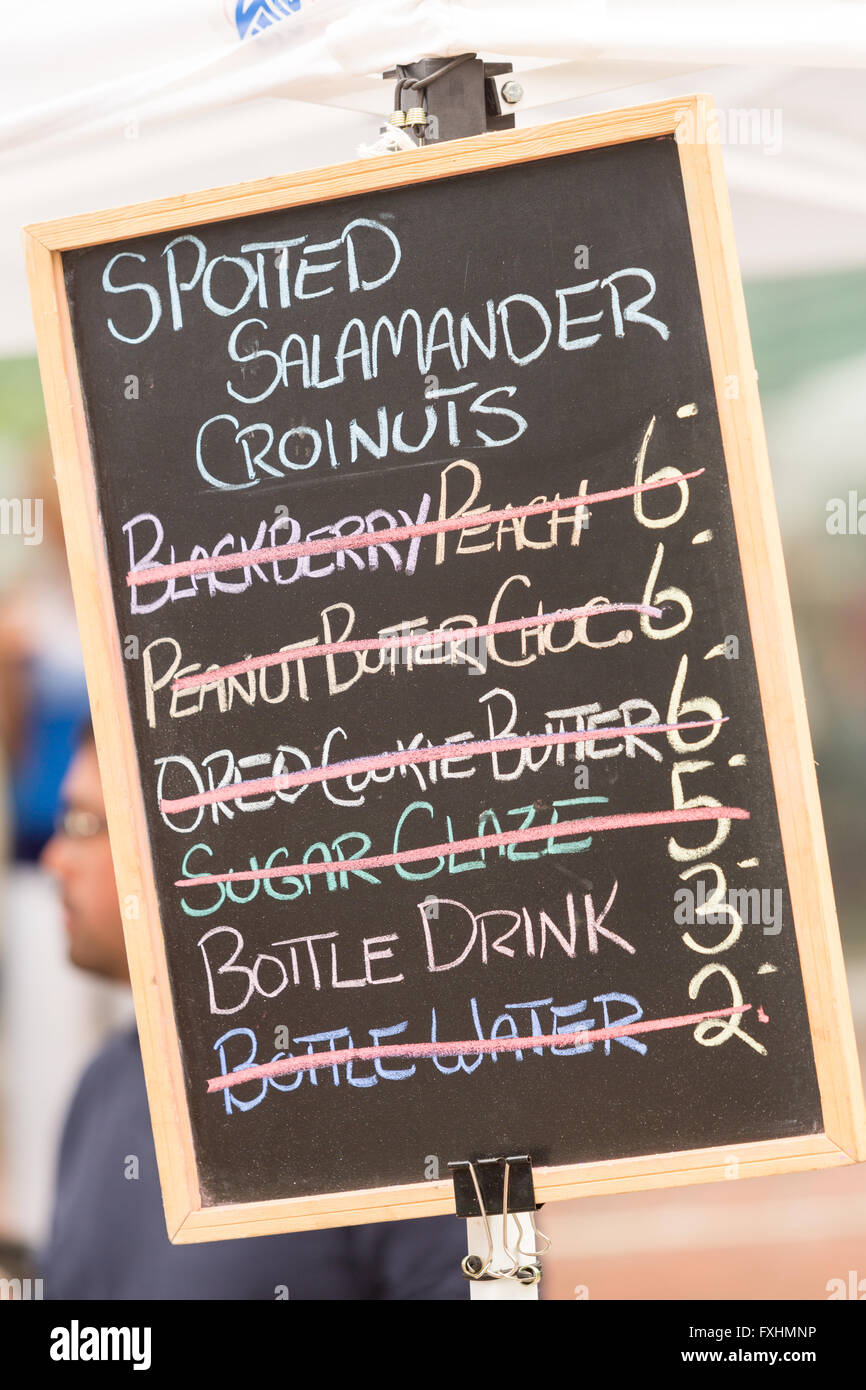 SPOTTED
SALAMANDER
CROINUTS
BLACKBERRY PEACH 6.-
PEANUT BUTTER CHOC. 6.-
OREO COOKIE BUTTER 6.-
SUGAR GLAZE 5.-
BOTTLE DRINK 3.-
BOTTLE WATER 2.-
alamy stock photo
FXHMNP
www.alamy.com